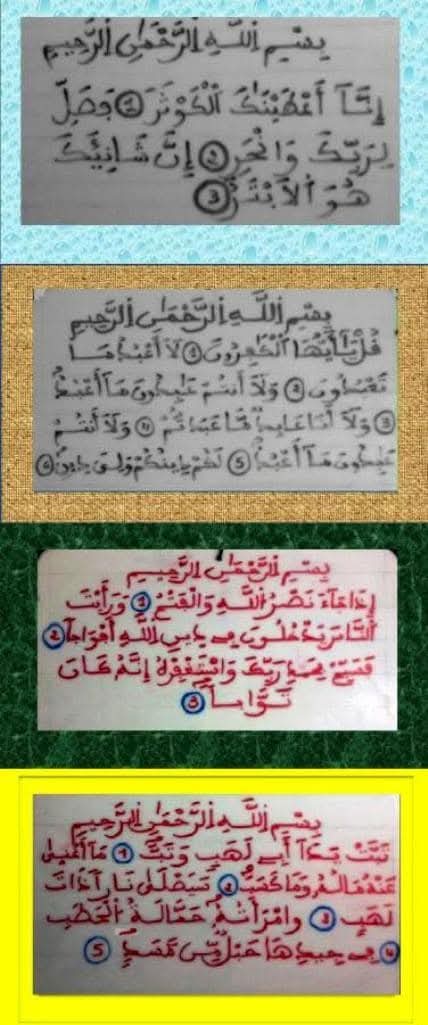 بِسْمِ اللَّهِ الرَّحْمَٰنِ الرَّحِيمِ
إِنَّآ أَعْطَيْنَٰكَ اَلْكَوْثَرَ ① فَصَلِّ
لِرَبِّكَ وَانْحَرِ ② إِنَّ شَانِئَكَ
هُوَ اَلَابْتَرُ ③
بِسْمِ اللَّهِ الرَّحْمَٰنِ الرَّحِيمِ
قُلْ يَٰٓأَيُّهَا اَلْكَٰفِرُونَ ① لَآ أَعْبُدُ مَا
تَعْبُدُونَ ② وَلَآ أَنتُمْ عَٰبِدُونَ مَآ أَعْبُدُ
③ وَلَآ أَنَا عَابِدٌ مَّا عَبَدتُّمْ ④ وَلَآ أَنتُمْ
عَٰبِدُونَ مَآ أَعْبُدُ ⑤ لَكُمْ دِينُكُمْ وَلِيَ دِينِ ⑥
بِسْمِ الرَّحْمَٰنِ الرَّحِيمِ
إِذَا جَآءَ نَصْرُ اللَّهِ وَالْفَتْحُ ① وَرَأَيْتَ
اَلنَّاسَ يَدْخُلُونَ فِي دِينِ اِللَّهِ أَفْوَاجاً ②
فَسَبِّحْ بِحَمْدِ رَبِّكَ وَاسْتَغْفِرْهُ إِنَّهُ كَانَ
تَوَّاباً ③
بِسْمِ اللَّهِ الرَّحْمَٰنِ الرَّحِيمِ
تَبَّتْ يَدَآ أَبِي لَهَبٍ وَتَبَّ ① مَآ أَغْنَىٰ
عَنْهُ مَالُهُ وَمَا كَسَبَ ② سَيَصْلَىٰ نَاراً ذَاتَ
لَهَبٍ ③ وَامْرَأَتُهُ حَمَّالَةُ الْحَطَبِ
④ فِي جِيدِهَا حَبْلٌ مِّن مَّسَدٍ ⑤